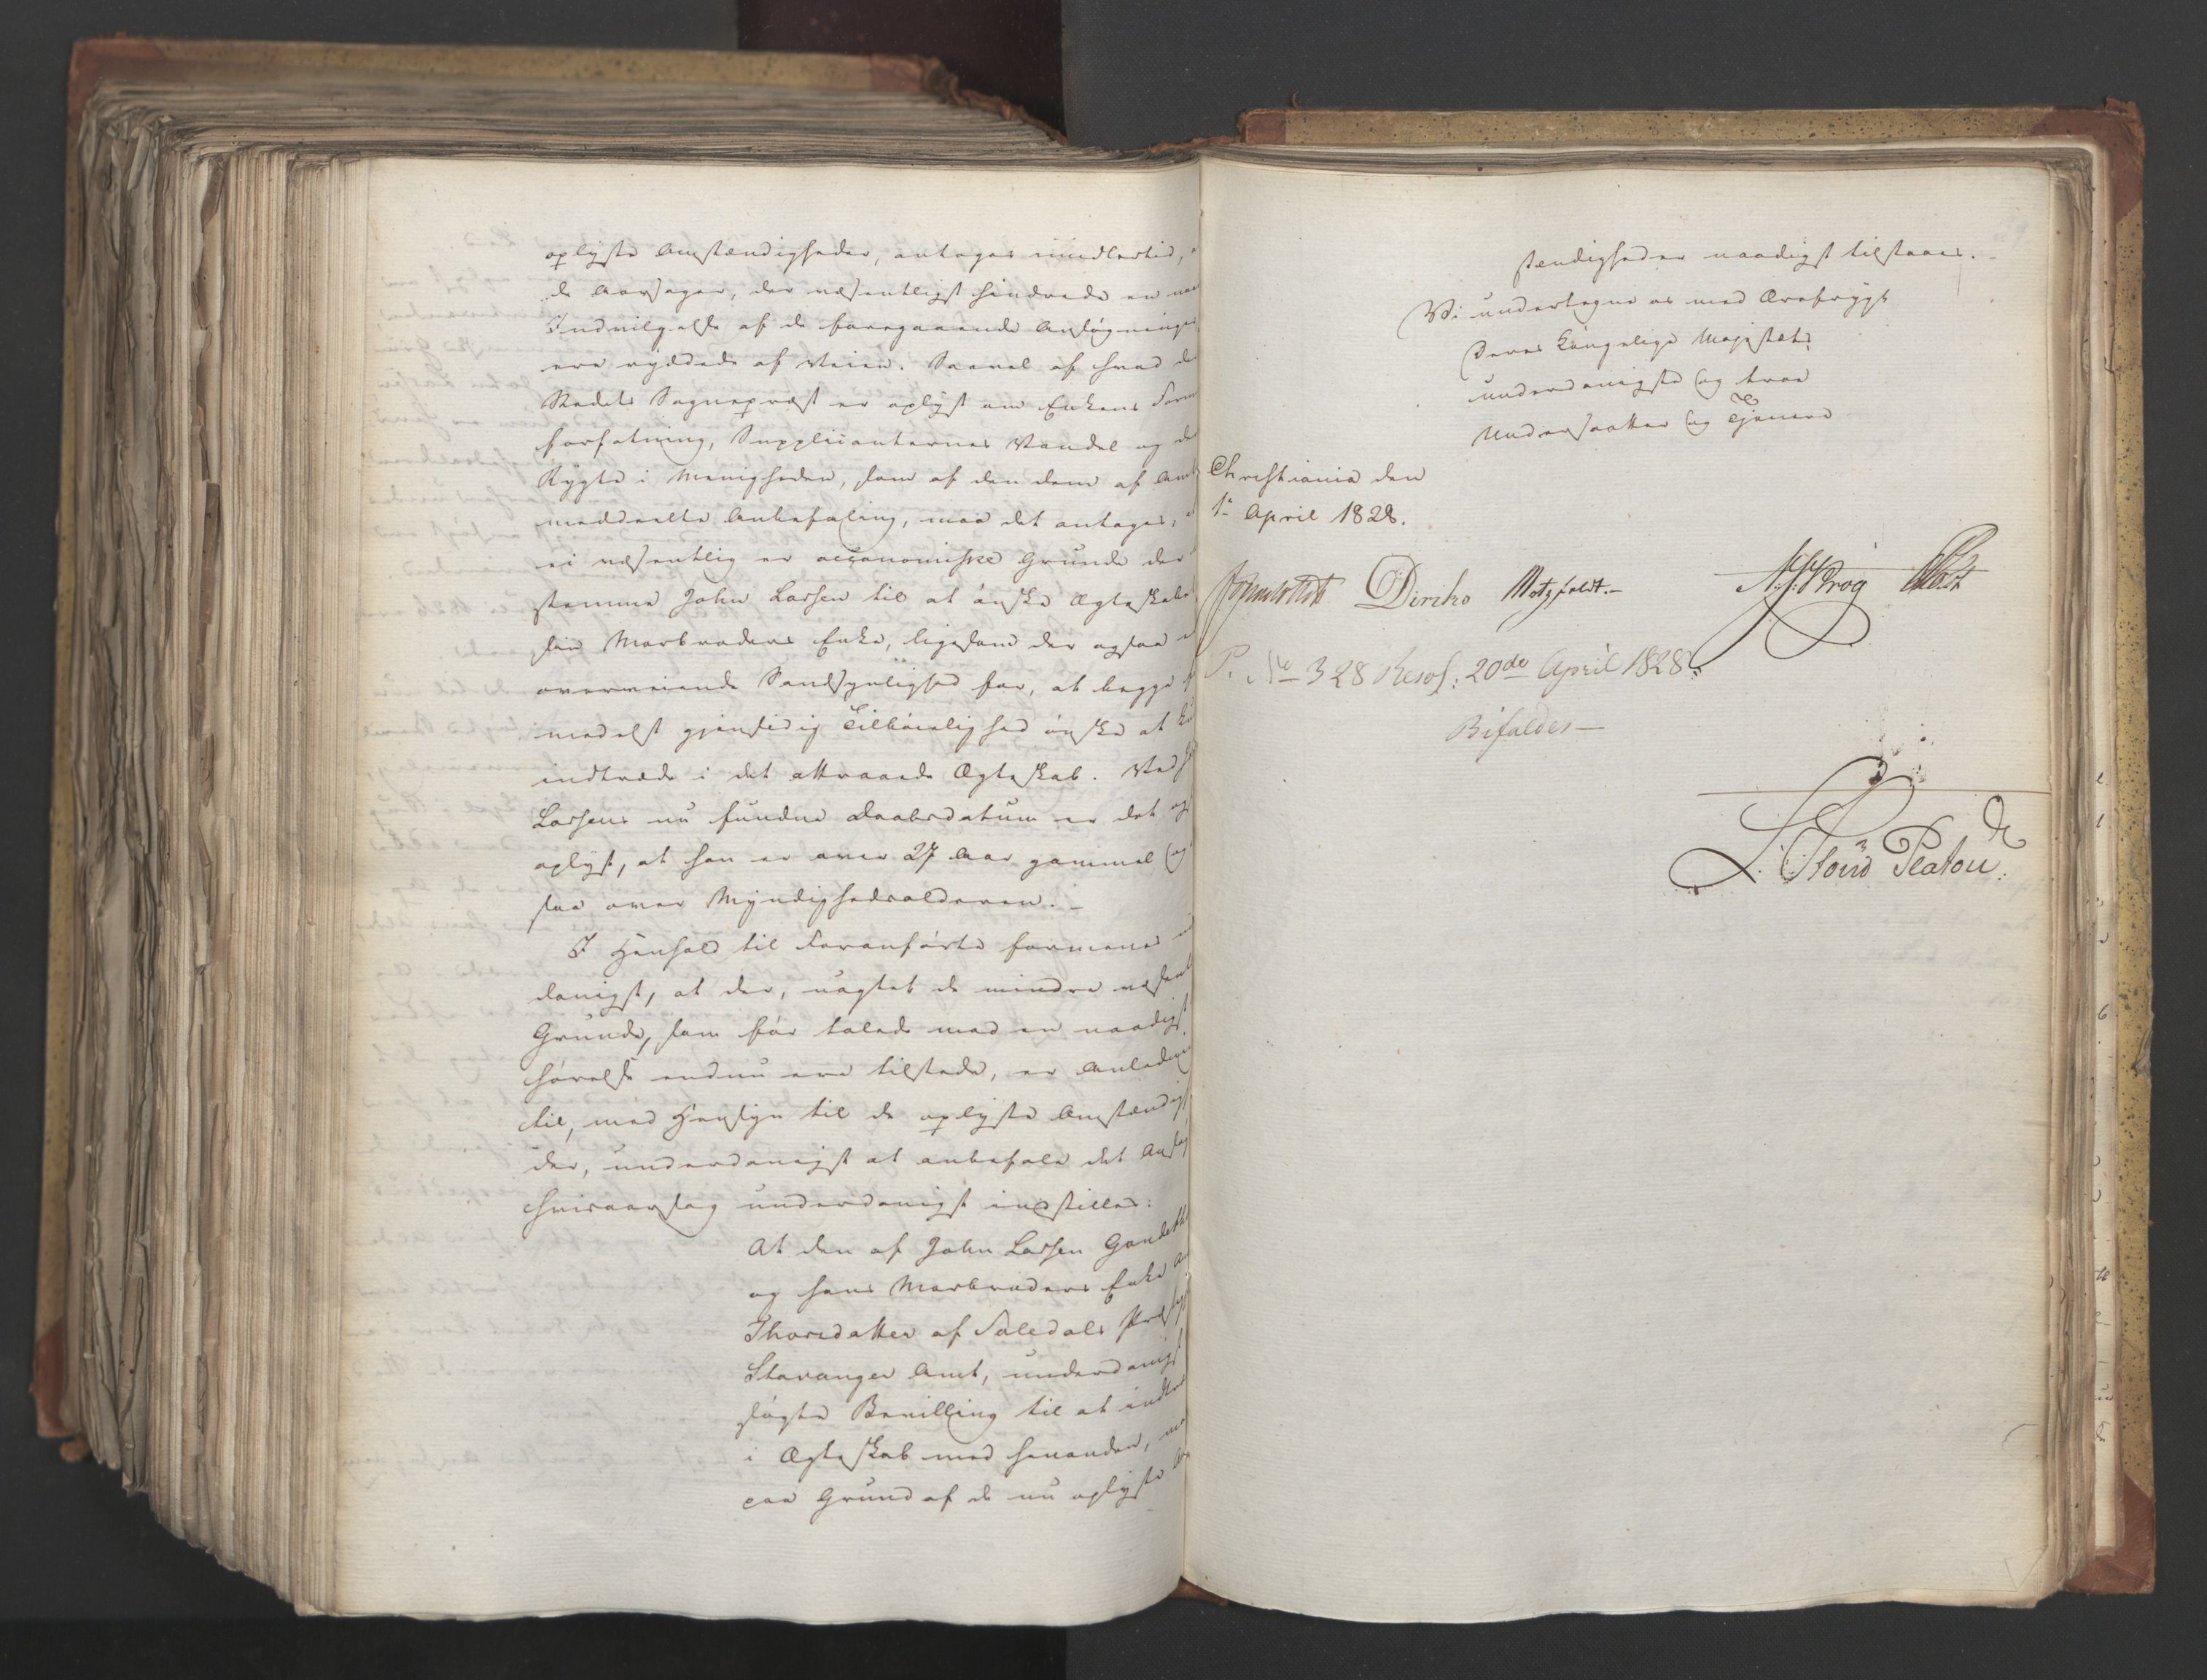 oplyste Omstændigheder, antages imidlertid,
de Aarsager, der væsentligst hindrede en
Indvilgelse af de foregaaende Ansøgninger
ere ryddede af Veien. Saavel af hvad
Stedets Sognepræst er oplyst om Enkens
forfatning, Supplicanternes Vandel og
Rygte i Menigheden, som af den dem af Amtet
meddeelte Anbefaling, maa det antages,
ei væsentlig er oeconomiske Grunde der
stemme John Larsen til at ønske Ægteskab
sin Morbroders Enke, ligesom der ogsaa
overveiende Sandsynlighed for, at begge
medelst gjensidig Tilbøielighed ønske at
indtræde i det attraaede Ægteskab. Ved
Larsens nu fundne Daabsdatum er det
oplyst, at han er over 27 Aar gammel og
saa over Myndighedsalderen. –
I Henhold til Foranførte formenes
danigst, at der, uagtet de mindre
Grunde, som før talede mod en naadigst
hørelse endnu ere tilstede, er Anledning
til, med Hensyn til de oplyste Omstændig
der, underdanigst at anbefale det
hvisaarsag underdanigst indstilles:
At den af John Larsen
og hans Morbroders Enke
Thorsdatter af Suledals
Stavanger Amt, underdanigst
søgte Bevilling til at indtræde
i Ægteskab med hinanden,
paa Grund af de nu oplyste
stændigheder naadigst tilstaaes. –
Vi undertegne os med Ærefrygt
Deres Kongelige Majestæts
underdanigste og troe
Undersaatter og Tjenere
Christiania den
1ste April 1828.
Diriks Motzfeldt. – Krog
P. No 328 Resol: 20de April 1828:
Bifaldes –
L. Stoud Platou.